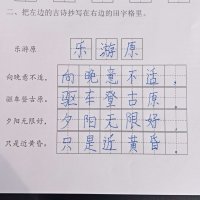 二、把左边的古诗抄写在右边的田字格里。
乐游原 乐游原
向晚意不适， 向晚意不适，
驱车登古原。 驱车登古原。
夕阳无限好， 夕阳无限好，
只是近黄昏。 只是近黄昏。